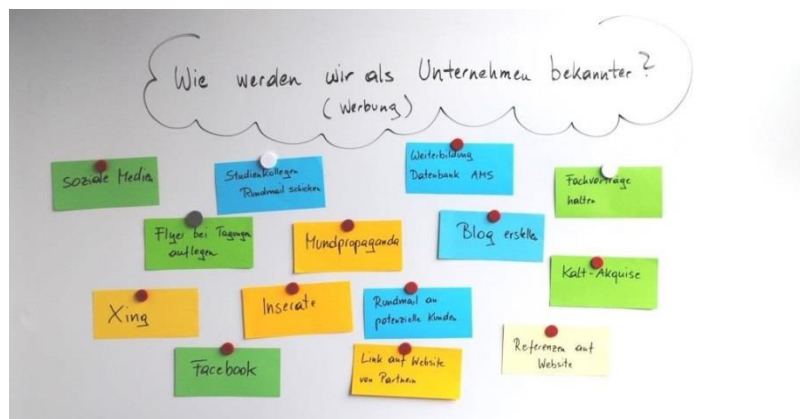 Wie werden wir als Unternehmen bekannter?
(Werbung)
Soziale Medien
Studienkollegen
Rundmail schicken
Weiterbildung
Datenbank AMS
Fachvorträge
halten
Flyer bei Tagungen
auflegen
Mundpropaganda
Blog erstellen
Kalt-Akquise
Xing
Inserate
Rundmail an
potenzielle Kunden
Referenzen auf
Website
Facebook
Link auf Website
von Partnern